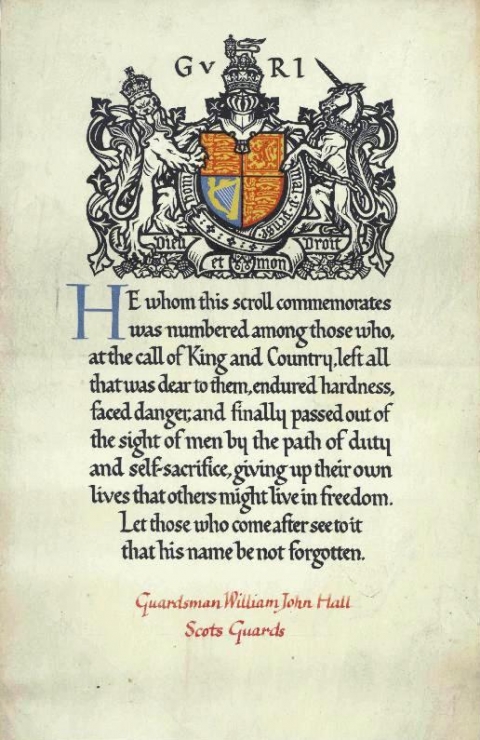 G V R I
Honi soit qui mal y pense
Dieu et mon Droit
HE whom this scroll commemorates
was numbered among those who,
at the call of King and Country, left all
that was dear to them, endured hardness,
faced danger, and finally passed out of
the sight of men by the path of duty
and self-sacrifice, giving up their own
lives that others might live in freedom.
Let those who come after see to it
that his name be not forgotten.
Guardsman William John Hall
Scots Guards